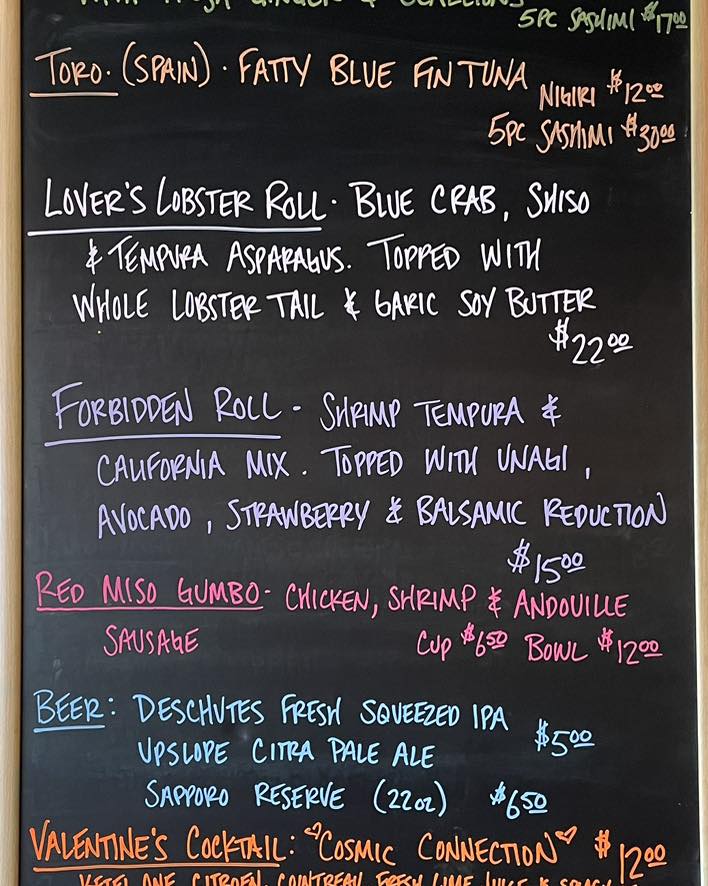 WITH FRESH GINGER & SCALLIONS
5PC SASHIMI $17.00
TORO. (SPAIN) · FATTY BLUE FIN TUNA
NIGIRI $12.00
5PC SASHIMI $30.00
LOVER'S LOBSTER ROLL · BLUE CRAB, SHISO
& TEMPURA ASPARAGUS. TOPPED WITH
WHOLE LOBSTER TAIL & GARIC SOY BUTTER
$22.00
FORBIDDEN ROLL - SHRIMP TEMPURA &
CALIFORNIA MIX. TOPPED WITH UNAGI,
AVOCADO, STRAWBERRY & BALSAMIC REDUCTION
$15.00
RED MISO GUMBO - CHICKEN, SHRIMP & ANDOUILLE
SAUSAGE CUP $6.50 BOWL $12.00
BEER: DESCHUTES FRESH SQUEEZED IPA
UPSLOPE CITRA PALE ALE $5.00
SAPPORO RESERVE (22oz) $6.50
VALENTINE'S COCKTAIL: "COSMIC CONNECTION" $12.00
KETEL ONE CITROEN, COINTREAU, FRESH LIME JUICE &